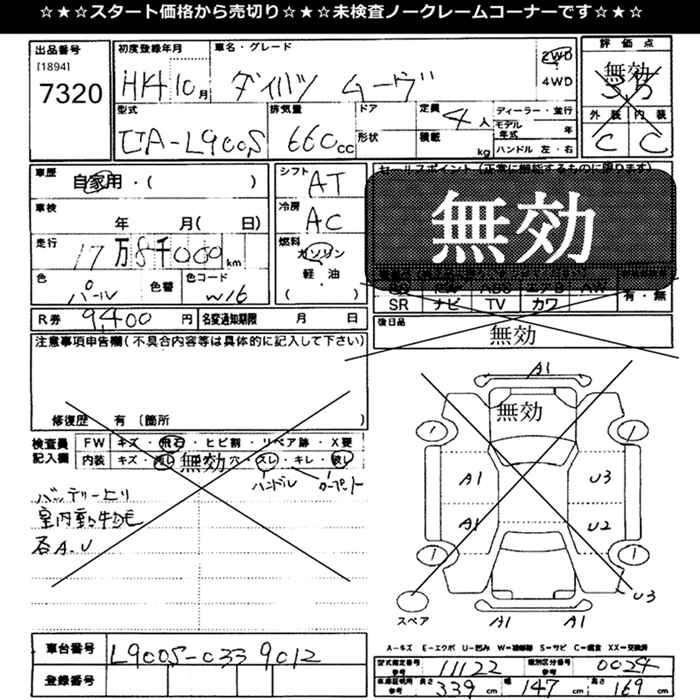 ☆★☆★スタート価格から売切り☆★☆★未検査ノークレームコーナーです☆★☆
出品番号
[1894]
7320
初度登録年月
H14 10月
車名・グレード
ダイハツ ムーヴ
2WD
4WD
評価点
無効
外装 内装
C C
型式
UA-L900S
排気量
660cc
ドア
形状
定員
4人
積載
kg
ディーラー・並行
モデル年式 年
ハンドル 左・右
車歴
自家用・( )
車検
年 月( 日)
走行
17万8千000km
色
パール
色替
色コード
W16
シフト
AT
冷房
AC
燃料
ガソリン
軽油
( )
セールスポイント(正常に機能するものに限ります)
無効
SR ナビ TV カワ
有・無
後日品
無効
R券 9,400円
名変通知期限 月 日
注意事項申告欄(不具合内容等は具体的に記入して下さい)
修復歴 有 [箇所
検査員記入欄
FW キズ・飛石・ヒビ割・リペア跡・X要
内装 キズ・汚レ 無効 穴・スレ・キレ・破レ
ハンドル カーペット
バッテリー上り
各A.U
無効
A1
A1
A1
U3
U2
U3
A1
A1
1
1
1
1
スペア
A-キズ E-エクボ U-凹み W-補修跡 S-サビ C-腐食 XX-交換済
車台番号 L900S-0339012
登録番号
型式指定番号 参考 11122
類別区分番号 参考 0024
車庫証明用 参考 長さ 339cm 幅 147cm 高さ 169cm